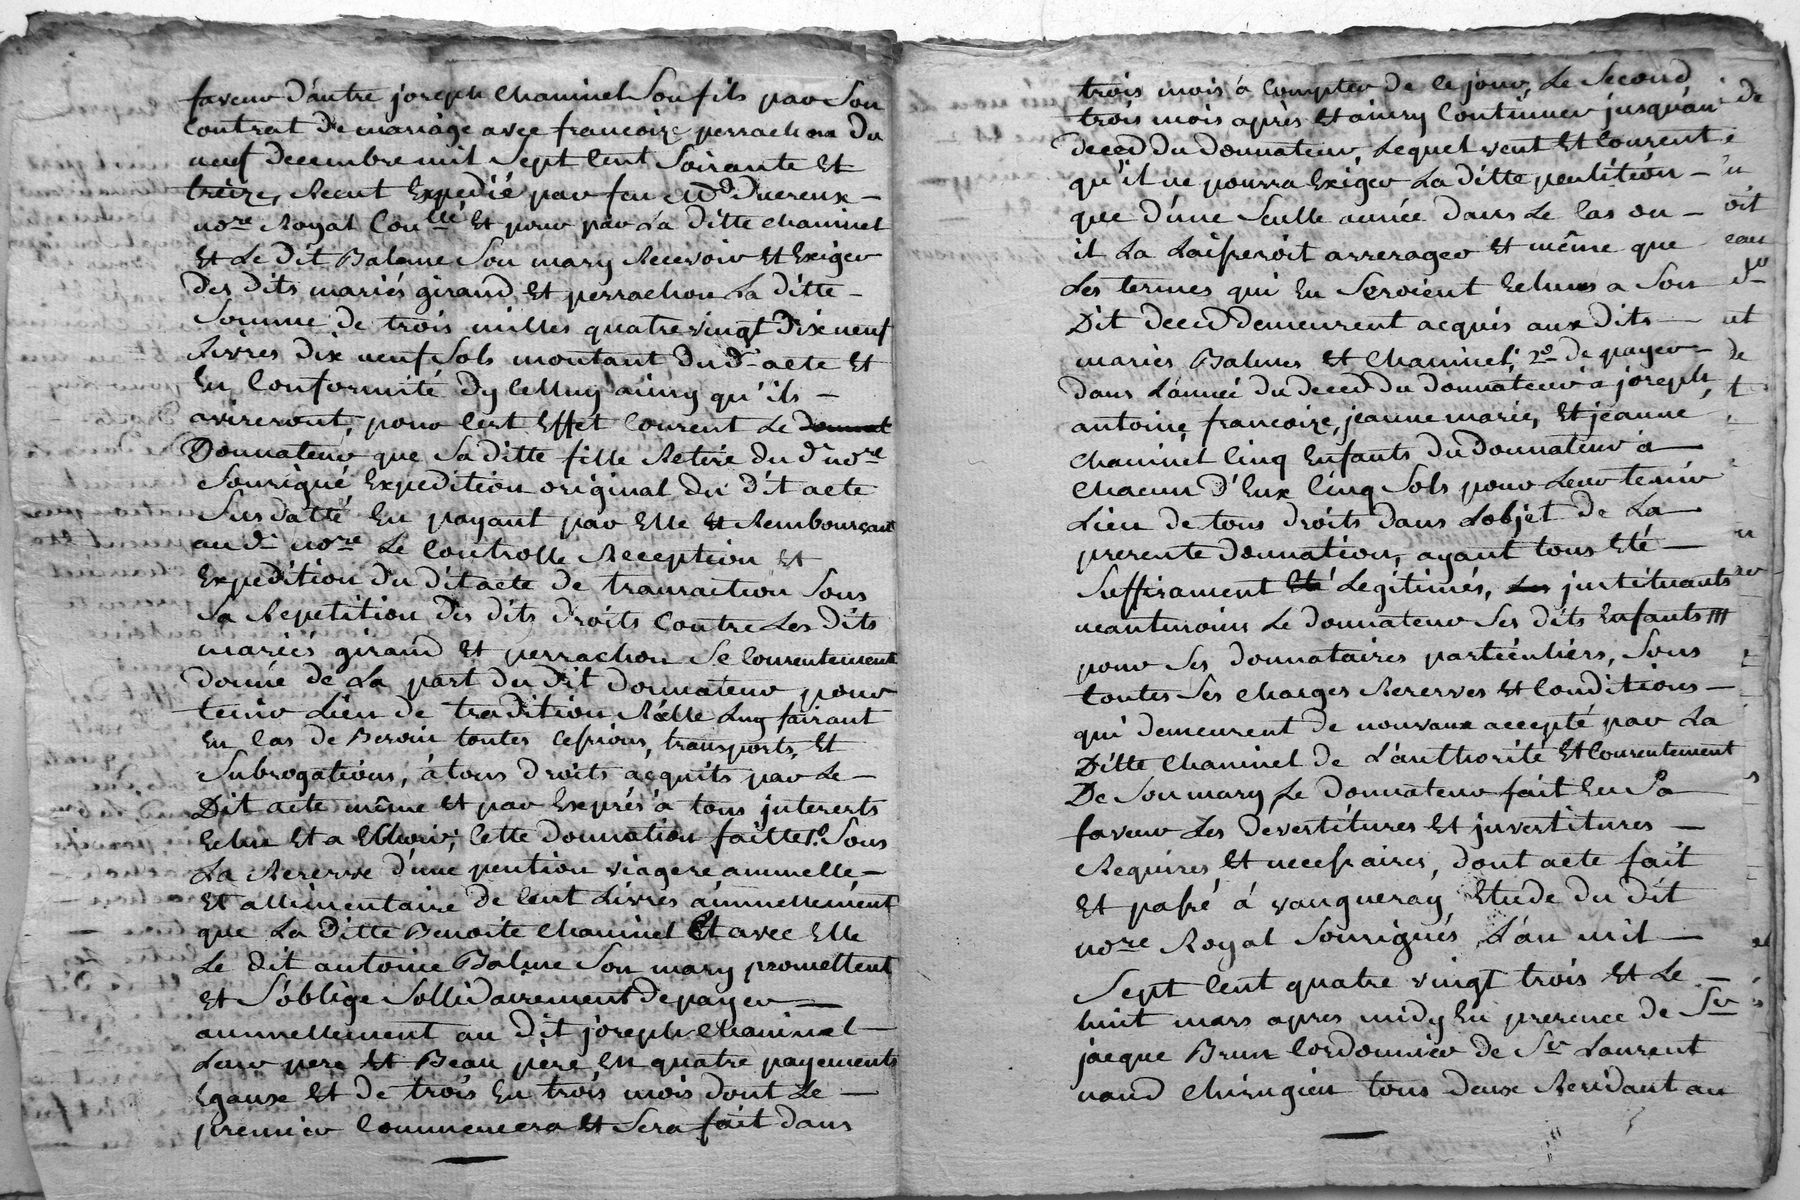 faveur d'autre joseph Chaninel Son fils par Son
Contrat de mariage avec francoize perrachon du
neuf decembre mil Sept Cent Soixante Et
treize, Recut Expedié par feu
nore Royal Et pour par La ditte Chaninel
Et Le dit Balme Son mary Recevoir Et Exiger
Des dits mariés giraud Et perrachon La ditte —
Somme de trois milles quatre vingt dix neuf
Livres dix neuf Sols montant du d. acte Et
En Conformité dy Celluy ainsy qu'ils —
aviseront, pour Cest Effet Consent Le donnat
Donnateur que Sa ditte fille Retire du d. nore
Sousigné Expedition original du dit acte
Susdatté En payant par Elle Et Rembourçant
au d. nore Le Controlle Reception Et
Expedition du dit acte de transaction Sous
La Repetition des dits droits Contre Les dits
mariés giraud Et perrachon Le Consentement
donné de La part du dit donnateur pour
tenir Lieu de tradition Réelle Luy faisant
En Cas de Besoin toutes Cessions, transports, Et
Subrogations, à tous droits acquits par Le —
Dit acte même Et par Exprés a tous interests
Echu Et a Echoir; Cette donnation faitte 1.o Sous
La Reserve d'une pention viagere annuelle —
Et allimentaire de Cent Livres annuellement
que La ditte Benoite Chaninel Et avec Elle
Le dit antoine Balme Son mary promettent
Et S'oblige Sollidairement de payer —
annuellement au dit joseph Chaninel —
Leur pere Et Beau pere En quatre payements
Egaux Et de trois En trois mois dont Le —
premier Commencera Et Sera fait dans
trois mois à Compter de Ce jour, Le Second
trois mois après Et ainsy Continuer jusqu'au
deced du donnateur, Lequel veut Et Consent
qu'il ne pourra Exiger La ditte pentition —
que d'une Seulle année dans Le Cas ou —
il La Laisseroit arrerager Et même que
Les termes qui En Seroient Echus a Son
Dit deced demeurent acquis aux dits —
mariés Balmes Et Chaninel; 2.o de payer —
dans L'année du deced du donnateur a joseph,
antoine, francoize, jeanne marie, Et jeanne
Chaninel Cinq Enfants du donnateur a
Chacun d'Eux Cinq Sols pour Leur tenir
Lieu de tous droits dans L'objet de La
presente donnation, ayant tous Eté —
Suffisament Eté Legitimés, Les instituants
neantmoins Le donnateur Ses dits Enfants
pour Ses donnataires particuliers, Sous
toutes Ses Charges Reserves Et Conditions —
qui demeurent de nouvaux accepté par La
Ditte Chaninel de L'authorité Et Consentement
De Son mary Le donnateur fait En Sa
faveur Les devestitures Et investitures —
Requires Et necessaires, dont acte fait
Et passé á vaugneray Etude du dit
nore Royal Sousignés, L'an mil —
Sept Cent quatre vingt trois Et Le —
huit mars apres midy En presence de Sr
jacque Brun Cordonnier de Sr Laurent
naud Chirugien tous deux Residant au